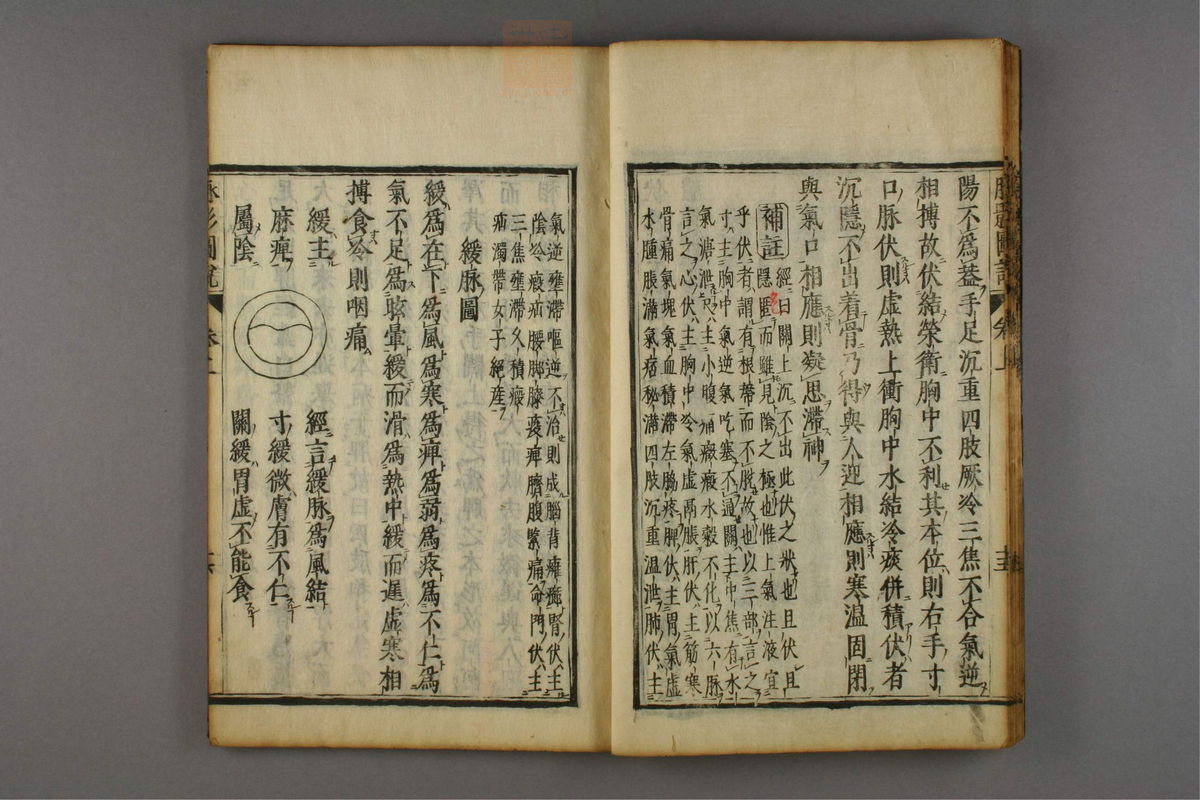 陽不爲益手足沉重四肢厥冷三焦不合氣逆
相搏故伏結榮衛胸中不利其本位則右手寸
口脉伏則虛熱上衝胸中水結冷痰併積伏者
沉隱不出着骨乃得與人迎相應則寒温固閉
與氣口相應則凝思滯神
補註
經曰關上沉不出此伏之狀也且伏且
隱匿而難見陰之極也惟上氣注液宜
乎伏者謂有根帶而不脫故也以三部言之
寸主胸中氣逆氣吃塞不通關主中焦有水
氣溏泄尺主小腹痛癥瘕水穀不化以六脉
言之心伏主胸中冷氣虛鬲脹肝伏主筋寒
骨痛氣塊氣血積滯左脇疼脾伏主胃氣虛
水腫脹滿氣痞秘滯四肢沉重温泄肺伏主
氣逆壅滯嘔逆不治則成腦背癰癤腎伏主
陰冷瘕疝腰脚膝痠痺臍腹緊痛命門伏主
三焦壅滯久積癥
疝濁帶女子絕産
緩脉圖
緩爲在下爲風爲寒爲痺爲弱爲疼爲不仁爲
氣不足爲眩暈緩而滑爲熱中緩而遲虛寒相
搏食冷則咽痛
緩主
麻痺
屬陰
經言緩脉爲風結
寸緩微膚有不仁
關緩胃虛不能食